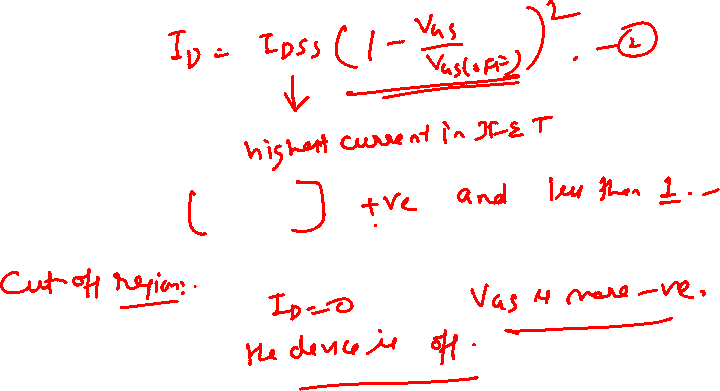 I_D = I_DSS (1 - V_GS / V_GS(OFF))^2. - ②
↓
highest current in JFET
[ ] +ve and less than 1. -
Cut off region:
I_D = 0 V_GS is more -ve.
the device is off.